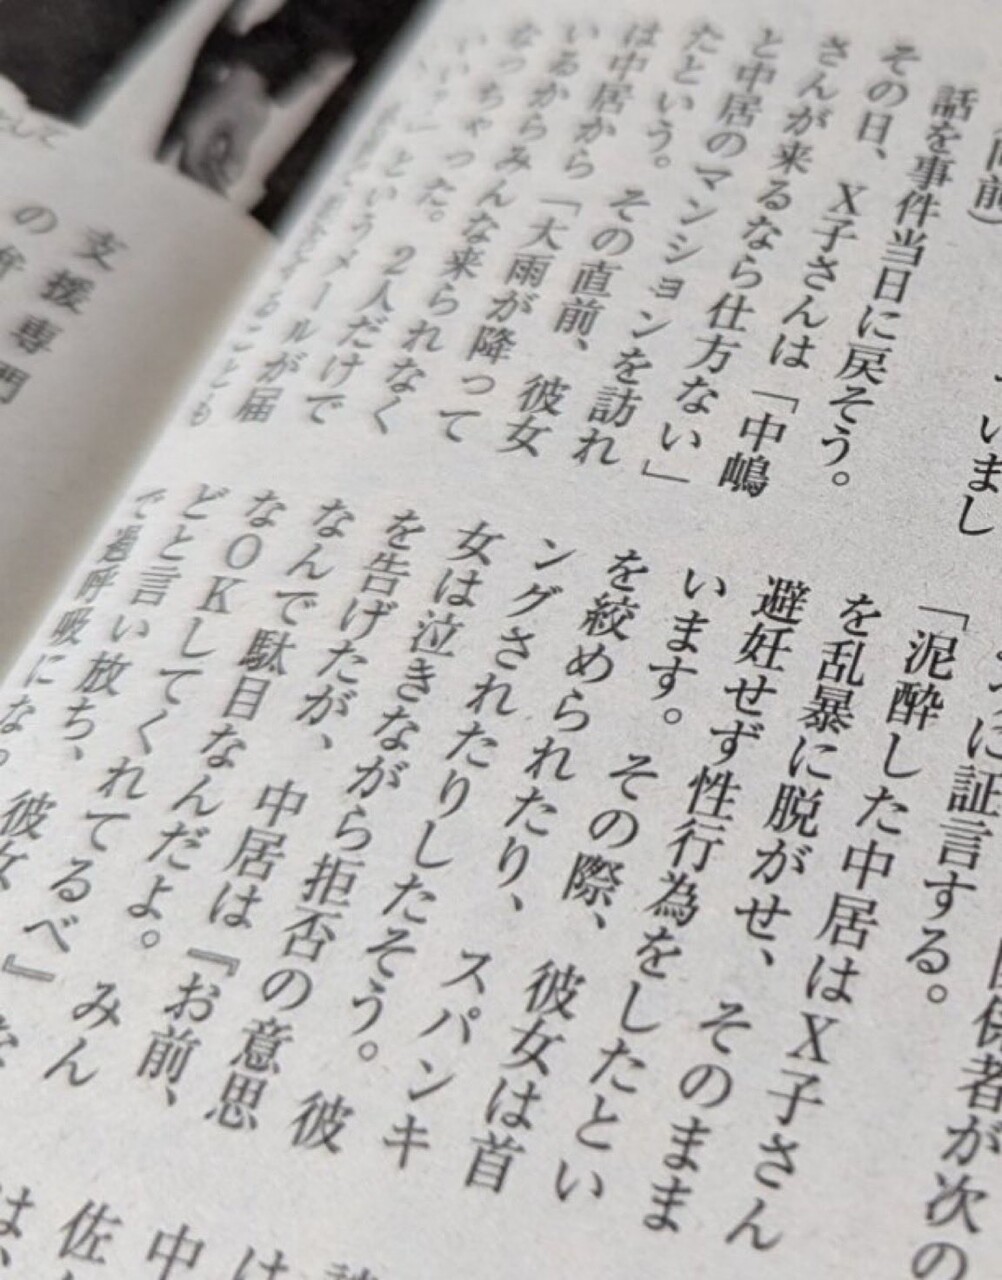 いまし
話を事件当日に戻そう。
その日、X子さんは「中嶋
さんが来るなら仕方ない」
と中居のマンションを訪れ
たという。その直前、彼女
は中居から「大雨が降って
いるからみんな来られなく
なっちゃった。2人だけで
というメールが届
に証言する。
関係者が次の
「泥酔した中居はX子さん
を乱暴に脱がせ、そのまま
避妊せず性行為をしたとい
います。その際、彼女は首
を絞められたり、スパンキ
ングされたりしたそう。彼
女は泣きながら拒否の意思
を告げたが、中居は『お前、
なんで駄目なんだよ。みん
なOKしてくれてるべ』な
どと言い放ち、彼女
で過呼吸にな
支援専門
の弁
として